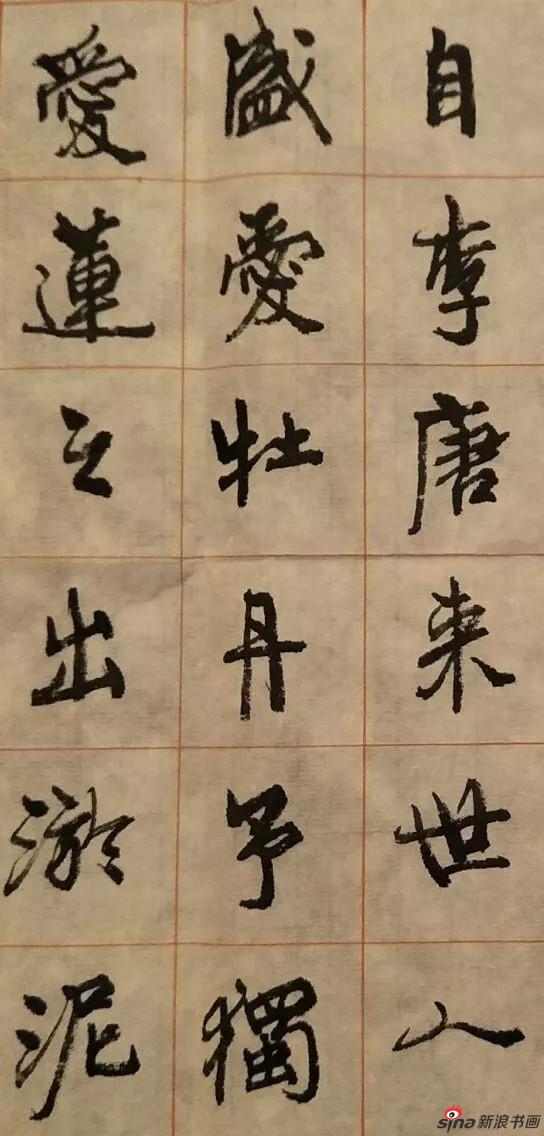 自李唐来世人
盛愛牡丹予獨
愛蓮之出淤泥
sina新浪书画